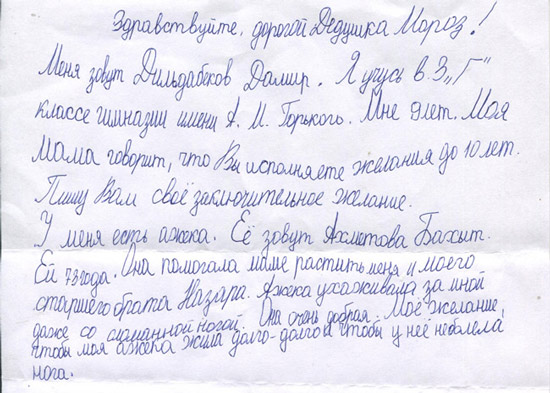 Здравствуйте, дорогой Дедушка Мороз!
Меня зовут Дильдабеков Дамир. Я учусь в 3 „Г"
классе гимназии имени А. М. Горького. Мне 9 лет. Моя
мама говорит, что Вы исполняете желания до 10 лет.
Пишу Вам своё заключительное желание.
У меня есть ажека. Её зовут Ахметова Бахыт.
Ей 73 года. Она помогала маме растить меня и моего
старшего брата Назара. Ажека ухаживала за мной
даже со сломанной ногой. Она очень добрая. Моё желание,
чтобы моя ажека жила долго-долго и чтобы у неё не болела
нога.